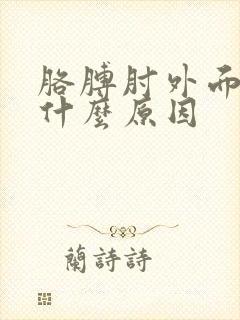 胳膊肘外而
什麼原因
蘭詩詩